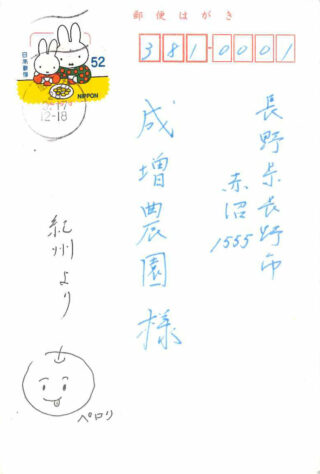 郵便はがき
381-0001
日本郵便
52
NIPPON
12-18
長野県長野市
赤沼
1555
成増農園様
紀州より
ペロリ